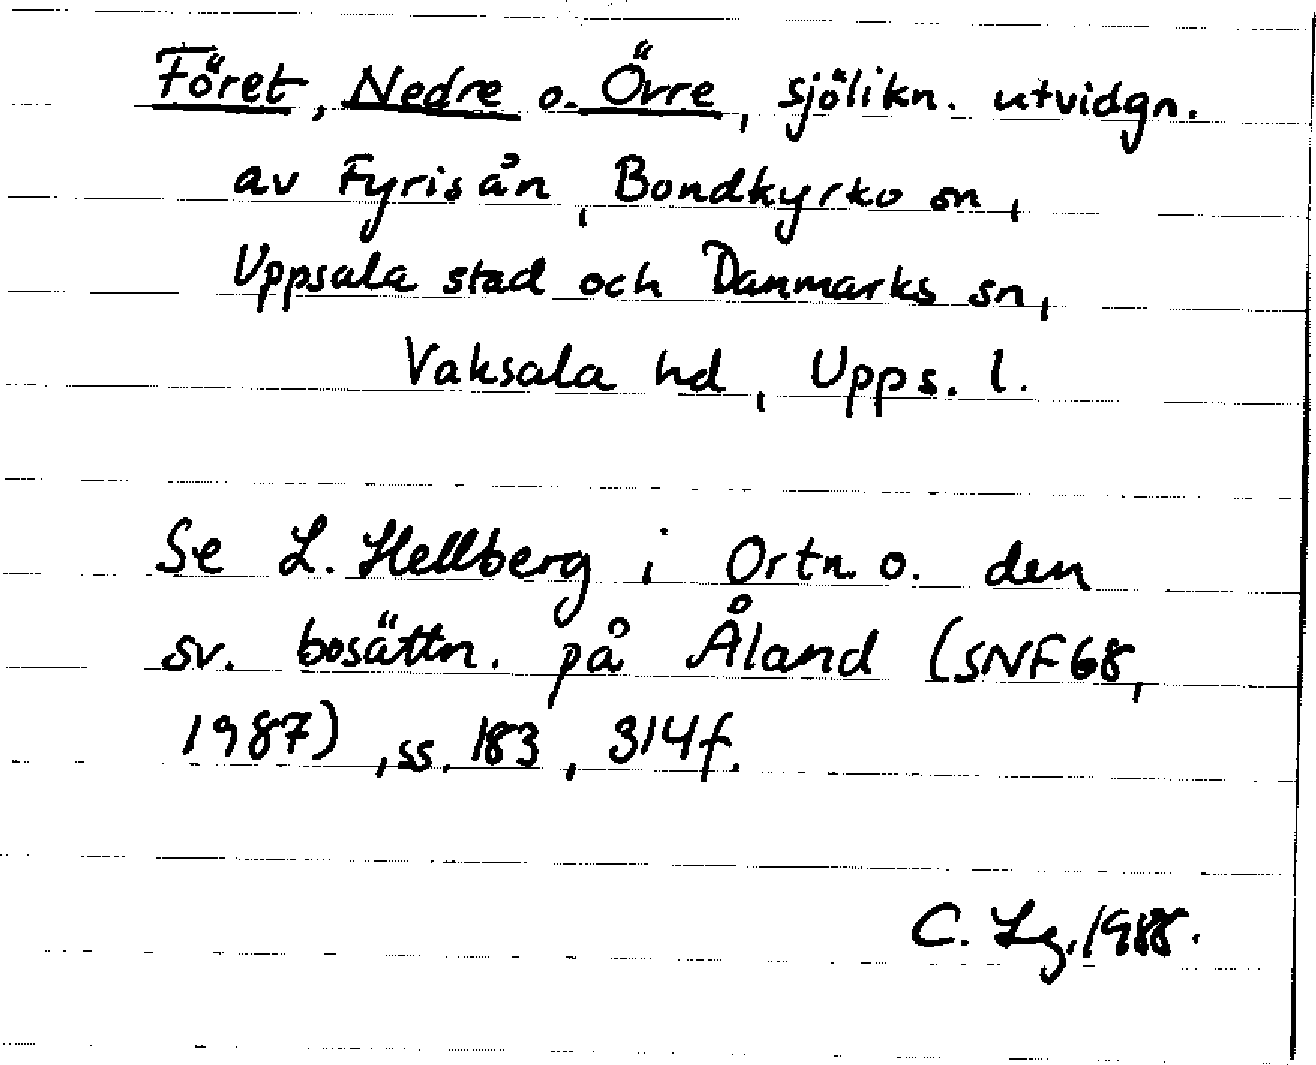 Föret, Nedre o. Övre, sjölikn. utvidgn.
av Fyrisån, Bondkyrko sn,
Uppsala stad och Danmarks sn,
Vaksala hd, Upps. l.
Se L. Hellberg i Ortn. o. den
sv. bosättn. på Åland (SNF 68,
1987), ss. 183, 314f.
C. Lg. 1988.